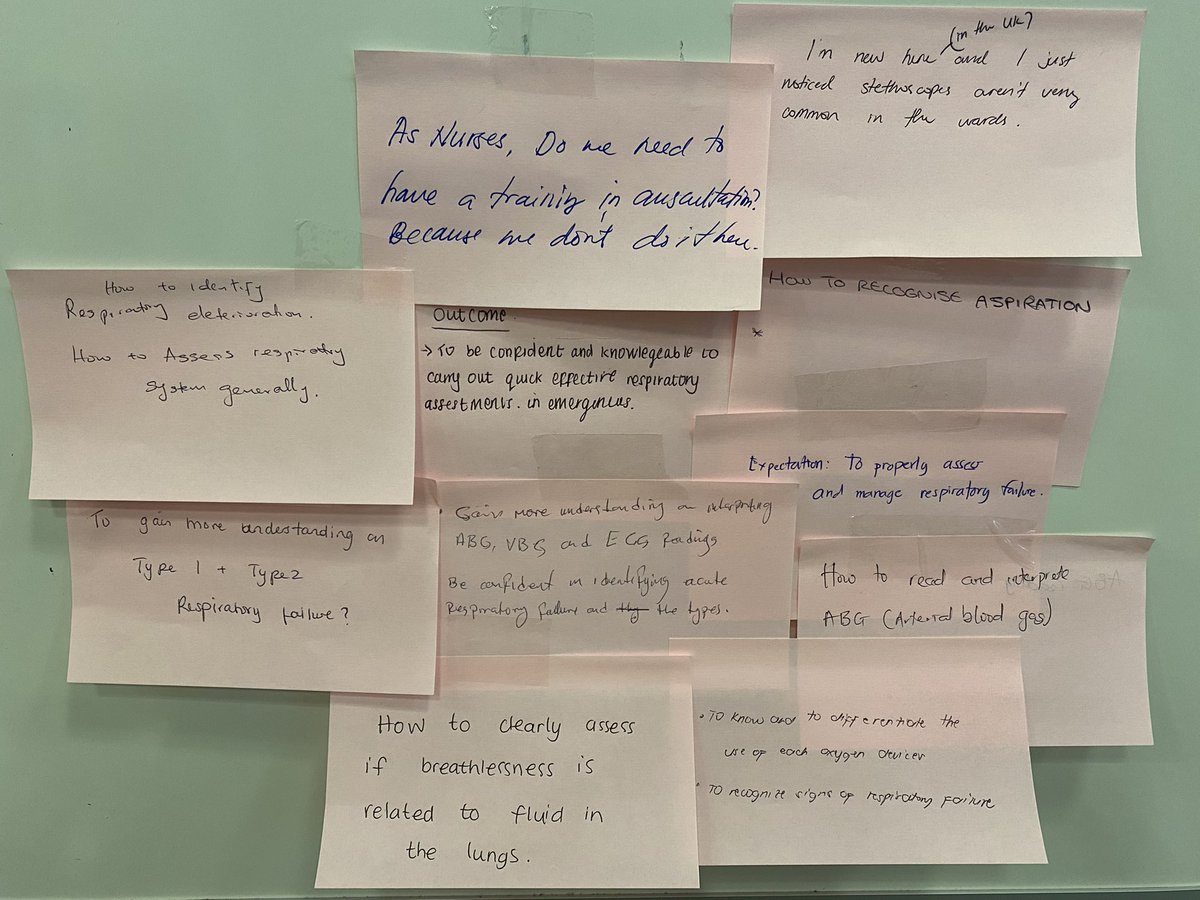 I'm new here (in the UK) and I just
noticed stethoscopes aren't very
common in the wards.
As Nurses, Do we need to
have a training in auscultation?
Because we don't do it here.
How to identify
Respiratory deterioration.
How to Assess respiratry
System generally.
Outcome.
→ To be confident and knowlegeable to
carry out quick effective respiratory
assestments. in emergencies.
HOW TO RECOGNISE ASPIRATION
*
Expectation: To properly asses
and manage respiratory failure.
To gain more understanding on
Type 1 + Type2
Respiratory failure?
• Gain more understanding on interpreting
ABG, VBG and ECG Readings
Be confident in identifying acute
Respiratory failure and the types.
How to read and interprete
ABG (Arterial blood gas)
How to clearly assess
if breathlessness is
related to fluid in
the lungs.
• To know and to differentiate the
use of each oxygen devices
• To recognize signs of respiratory failure